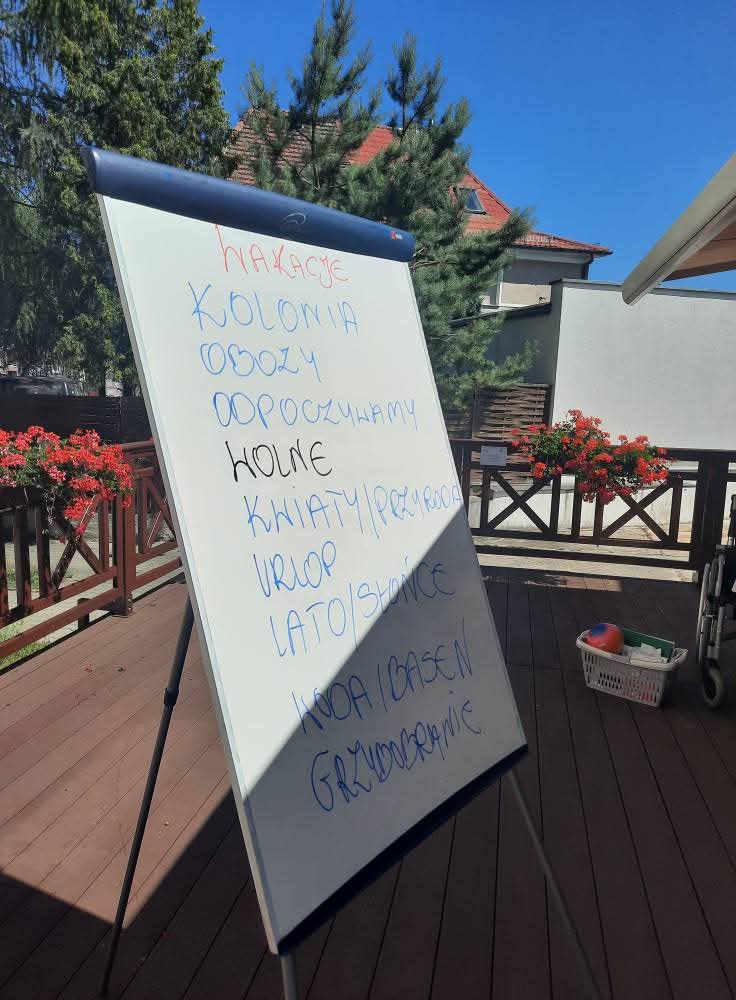 WAKACJE
KOLONIA
OBOZY
ODPOCZYWAMY
WOLNE
KWIATY/PRZYRODA
URLOP
LATO/SŁOŃCE
WODA/BASEN
GRZYBOBRANIE